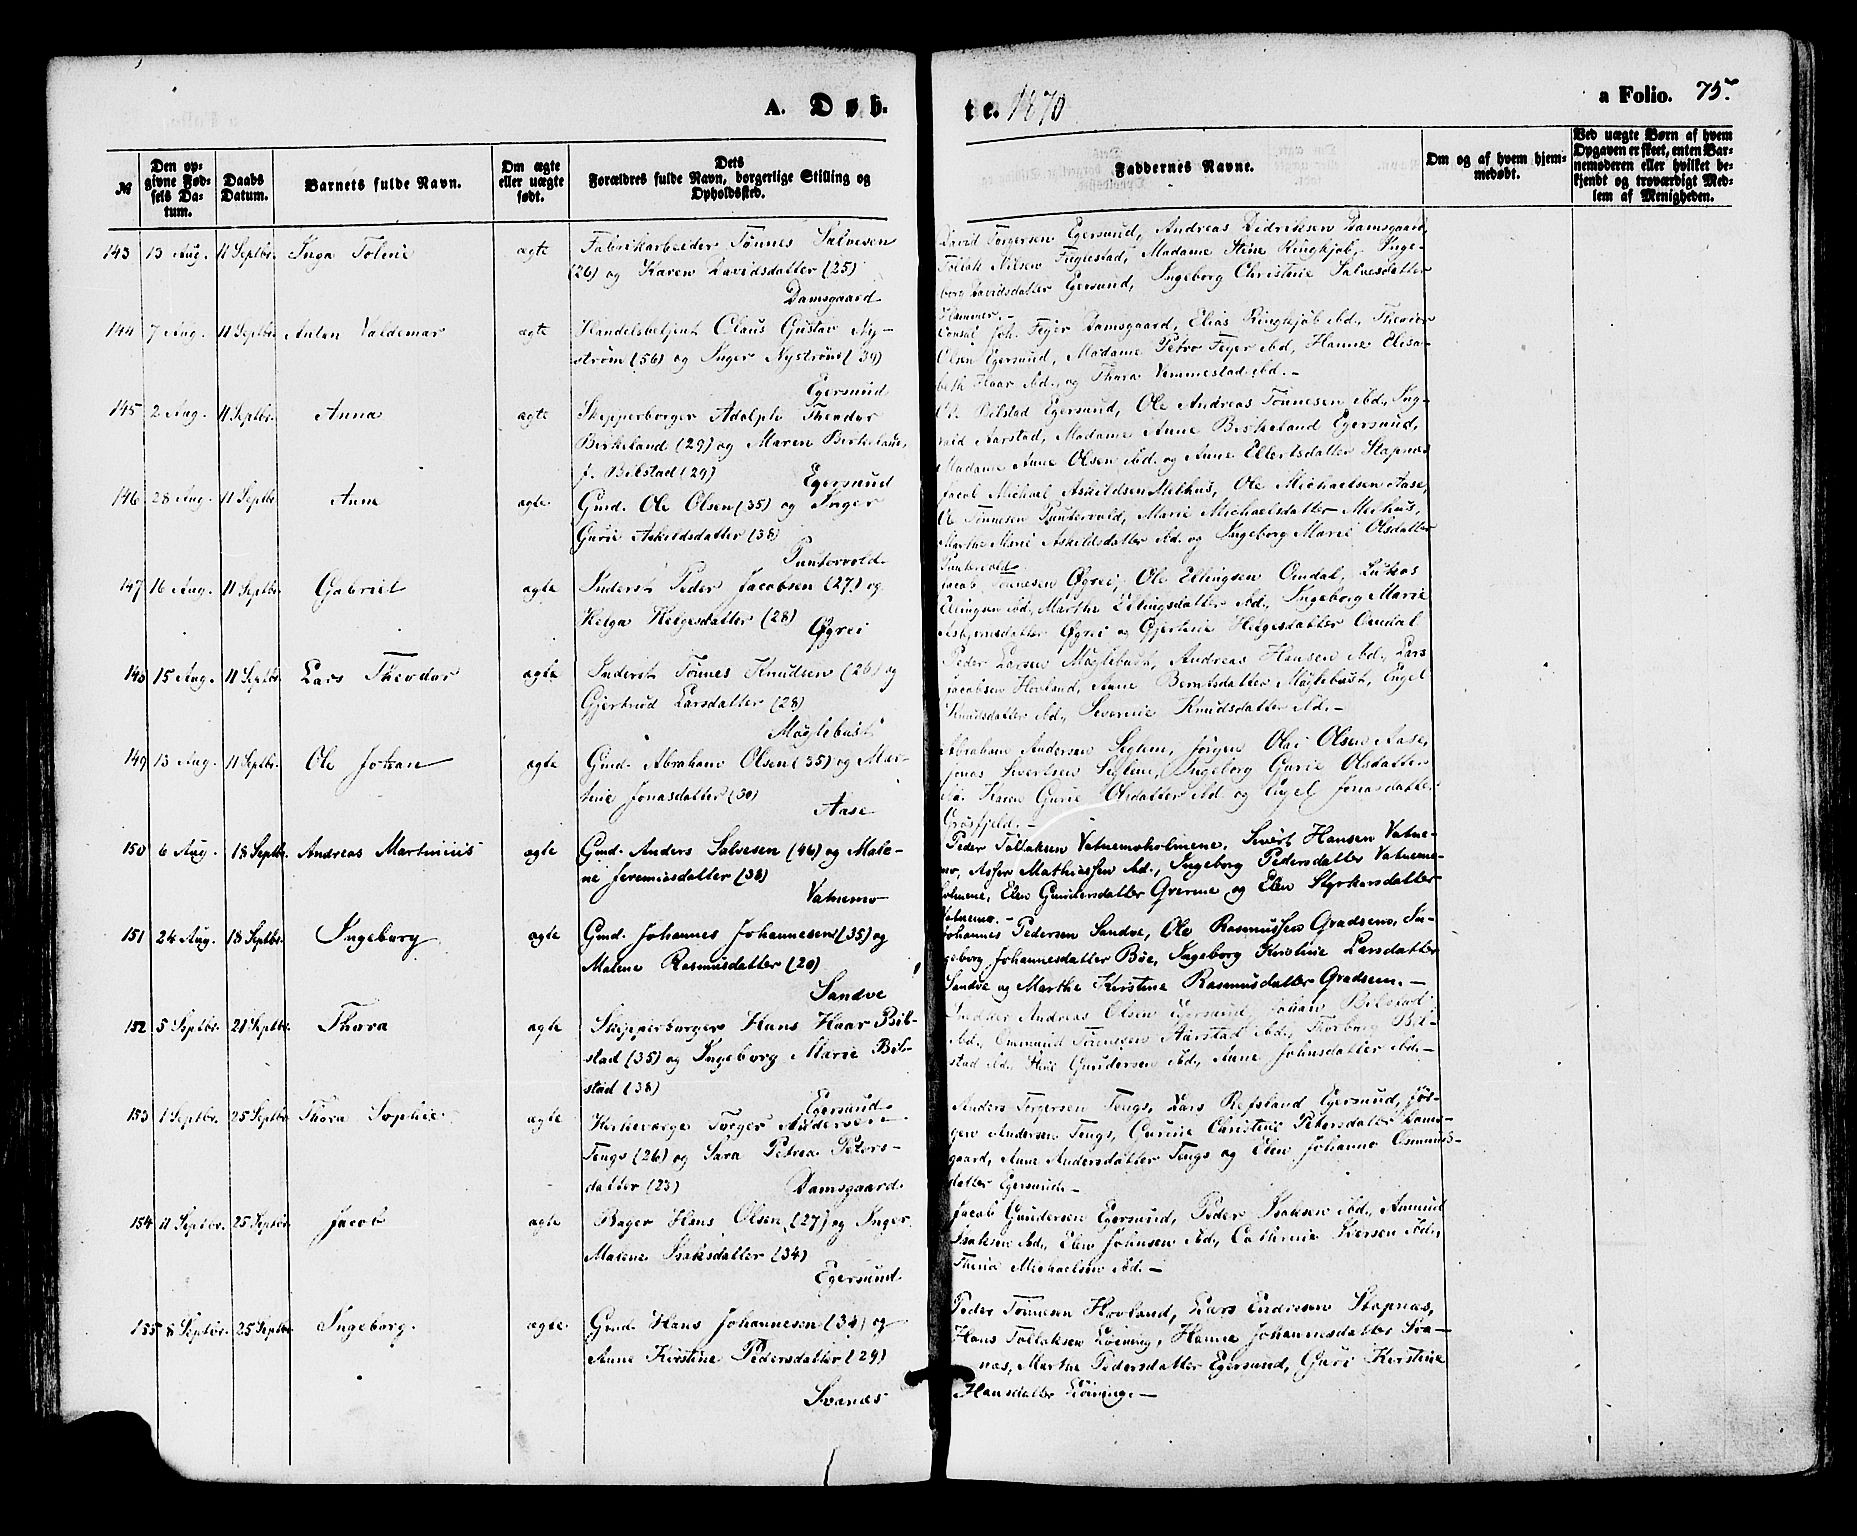 A. Døb-
te. 1870
a Folio. 75.
№
Den op-
givne Fød-
sels Da-
tum.
Daabs
Datum.
Barnets fulde Navn.
Om ægte
eller uægte
født.
Dets
Forældres fulde Navn, borgerlige Stilling og
Opholdssted.
Faddernes Navne.
Om og af hvem hjem-
medøbt.
Ved uægte Børn af hvem
Opgaven er skeet, enten Bar-
nemoderen eller hvilket be-
kjendt og troværdigt Med-
lem af Menigheden.
143 13 Aug. 11 Septbr. Inga Toline ægte Fabrikarbeider Tønnes Salvesen
(26) og Karen Davidsdatter (25)
Damsgaard
David Torgersen Egersund, Andreas Didriksen Damsgaard,
Tollak Nilsen Fuglestad, Madame Stine Ringkjøb, Inge-
borg Davidsdatter Egersund, Ingeborg Christine Salvesdatter
144 7 Aug. 11 Septbr. Anton Valdemar ægte Handelsbetjent Claus Gustav Ny-
strøm (56) og Inger Nystrøm (39)
Egersund
Consul Joh. Feyer Damsgaard, Elias Ringkjøb ibd., Theodor
Olsen Egersund, Madame Petra Feyer ibd, Hanne Elisa-
beth Haar ibd., og Thora Vemmestad ibd. -
145 2 Aug. 11 Septbr. Anna ægte Skipperborger Adolph Theodor
Birkeland (29) og Maren Birkeland,
f. Bilstad (29)
Egersund
Ole Bilstad Egersund, Ole Andreas Tønnesen ibd., Ing-
vald Aarstad, Madame Anne Birkeland Egersund,
Madame Anne Olsen ibd. og Anne Ellertsdatter Stapnes
146 28 Aug. 11 Septbr Anne ægte Gmd. Ole Olsen (35) og Inger
Gurie Askildsdatter (38)
Puntervold.
Jacob Michael Askildsen Methus, Ole Michaelsen Aase,
Ole Tønnesen Puntervold, Marie Michaelsdatter Methus,
Marthe Marie Askildsdatter ibd. og Ingeborg Marie Olsdatter
Puntervold
147 16 Aug. 11 Septbr. Gabriel ægte Inderst Peder Jacobsen (27) og
Helga Helgesdatter (28)
Øgrei
Jacob Tønnesen Øgrei, Ole Ellingsen Omdal, Lukas
Ellingsen ibd., Marthe Ellingsdatter ibd., Ingeborg Marie
Asbjørnsdatter Øgrei og Gjertine Helgesdatter Omdal
148 15 Aug. 11 Septbr. Lars Theodor ægte Inderst Tønnes Knudsen (26) og
Gjertrud Larsdatter (28)
Møglebust
Peder Larsen Møglebust, Andreas Hansen ibd., Lars
Jacobsen Hovland, Anne Berntsdatter Møglebust, Engel
Knudsdatter ibd., Severine Knudsdatter ibd. -
149 13 Aug. 11 Septbr. Ole Johan ægte Gmd. Abraham Olsen (35) og Mar-
thine Jonasdatter (30)
Aase
Abraham Andersen Seglem, Jørgen Olai Olsen Aase,
Jonas Sivertsen Seglem, Ingeborg Gurie Olsdatter
ibd. Karen Gurie Olsdatter ibd. og Engel Jonasdatter
Grøsfjeld. -
150 6 Aug. 18 Septbr. Andreas Martinius ægte Gmd. Anders Salvesen (46) og Male-
ne Jeremiasdatter (38)
Vatnemo
Peder Tollaksen Vatnemoholmene, Sivert Hansen Vatne-
mo, Asser Mathiassen ibd., Ingeborg Pedersdatter Vatnemo-
holmene, Elen Gundersdatter Qverme og Elen Styrkorsdatter
Vatnemo. -
151 24 Aug. 18 Septbr. Ingeborg ægte Gmd. Johannes Johannesen (35) og
Malene Rasmusdatter (20)
Sandve
Johannes Pedersen Sandve, Ole Rasmussen Gradsem, In-
geborg Johannesdatter Bøe, Ingeborg Kirstine Larsdatter
Sandve og Marthe Kirstine Rasmusdatter Gradsem. -
152 5 Septbr. 21 Septbr. Thora ægte Skipperborger Hans Haar Bil-
stad (35) og Ingeborg Marie Bil-
stad (38)
Egersund
Snedker Andreas Olsen Egersund, Johan Bilstad
ibd., Ommund Tønnesen Aarstad ibd., Thorborg Bil-
stad ibd., Stine Gundersen ibd., Anne Johnsdatter ibd. -
153 1 Septbr. 25 Septbr Thora Sophie ægte Kirkeværge Torger Andersen
Tengs (26) og Sara Petrea Peters-
datter (23)
Damsgaard.
Anders Torgersen Tengs, Lars Refsland Egersund, Jør-
gen Andersen Tengs, Gurine Christine Petersdatter Dams-
gaard, Anne Andersdatter Tengs og Elen Johanne Osmunds-
datter Egersund. -
154 11 Septbr. 25 Septbr. Jacob ægte Bager Hans Olsen (27) og Inger
Malene Isaksdatter (34)
Egersund
Jacob Gundersen Egersund, Peder Isaksen ibd., Anmund
Isaksen ibd., Elen Johnsen ibd., Cathrine Iversen ibd.,
Thrine Michaelsen ibd. -
155 8 Septbr. 25 Septbr. Ingeborg. ægte. Gmd. Hans Johannesen (34) og
Anne Kirstine Pedersdatter (29)
Svanes
Peder Tønnesen Hovland, Lars Endresen Stapnes,
Hans Tollaksen Løvning, Hanne Johannesdatter Sva-
nes, Marthe Pedersdatter Egersund, Guri Kirstine
Hansdatter Løvning. -